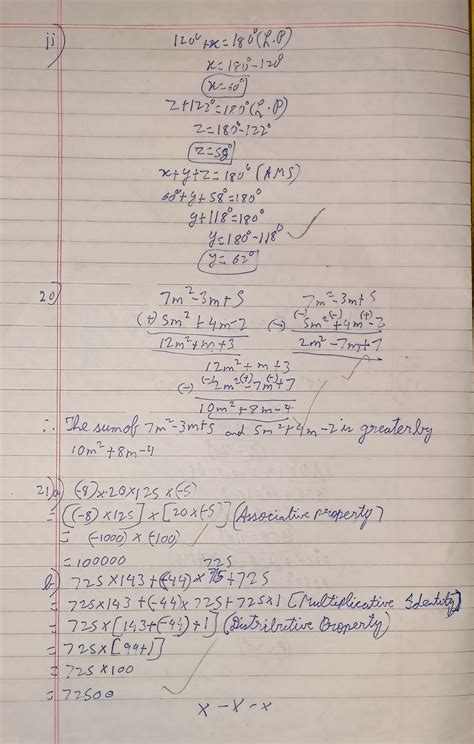 ii)
120° + x = 180° (L.P)
x = 180° - 120°
x = 60°
z + 122° = 180° (L.P)
z = 180° - 122°
z = 58°
x + y + z = 180° (AMS)
60° + y + 58° = 180°
y + 118° = 180°
y = 180° - 118°
y = 62°
20)
7m² - 3m + 5
(+) 5m² + 4m - 2
12m² + m + 3
7m² - 3m + 5
(-) (-) (+)
(-) 5m² + 4m - 2
2m² - 7m + 7
12m² + m + 3
(-) (+) (-)
(-) 2m² - 7m + 7
10m² + 8m - 4
∴ The sum of 7m² - 3m + 5 and 5m² + 4m - 2 is greater by
10m² + 8m - 4
21) a) (-8) × 20 × 125 × (-5)
= [(-8) × 125] × [20 × (-5)] (Associative property)
= (-1000) × (-100)
= 100000
725
b) 725 × 143 + (-44) × + 725
= 725 × 143 + (-44) × 725 + 725 × 1 [Multiplicative Identity]
= 725 × [143 + (-44) + 1] (Distributive Property)
= 725 × [99 + 1]
= 725 × 100
= 72500
x - x - x